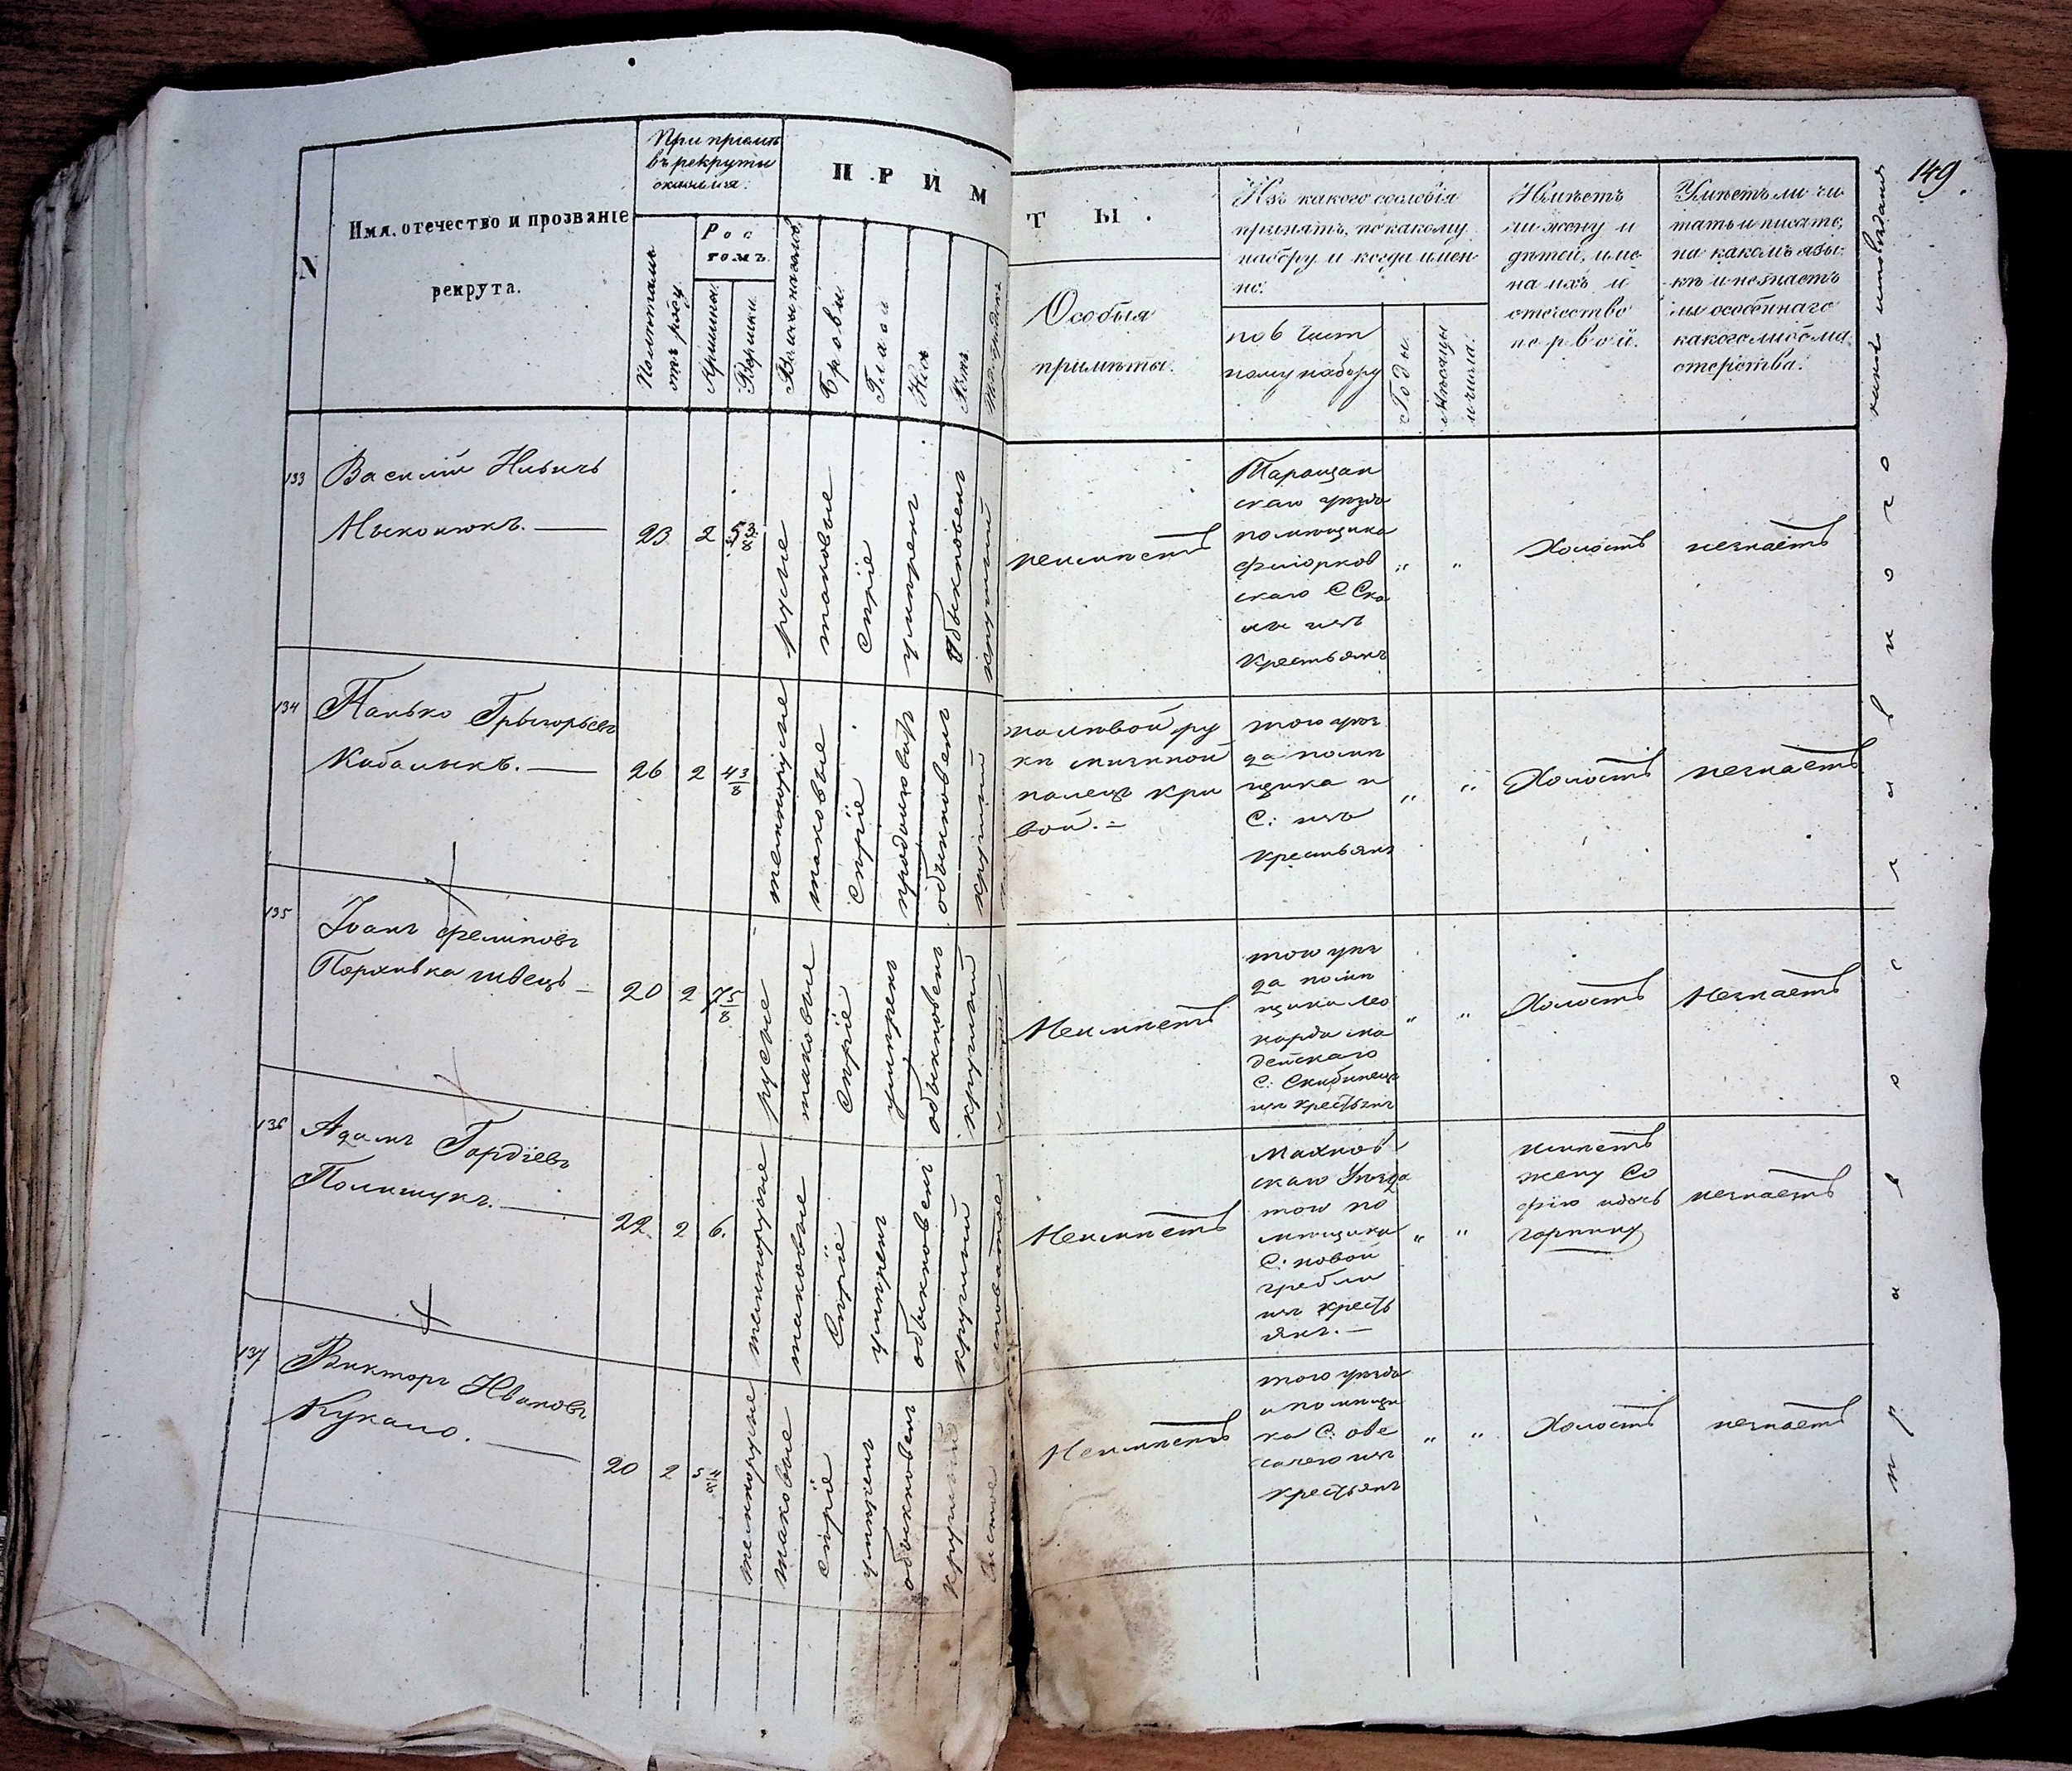 149.
N
Имя, отечество и прозваніе
рекрута.
При пріемѣ
въ рекруты
Рос
томъ.
Аршины.
Вершки.
ПРИМ
Брови.
Глаза
Носъ
Ротъ
ТЫ.
Особыя
примѣты.
Изъ какого сословія
принятъ, по какому
набору и когда имен
но.
по 6 част
ному набору
Годы.
Мѣсяцы
и числа.
Имѣетъ
ли жену и
дѣтей, име
на ихъ и
отчество
первой.
Умѣетъ ли чи
тать и писать,
на какомъ язы
кѣ и незнаетъ
ли особеннаго
какого либо ма
стерства.
какого исповѣданія
православнаго
133
Василій Ильичъ
23
2
5 3/8
русые
таковые
сѣріе
умѣренъ
обыкновенъ
круглый
неимѣетъ
Таращан
скаго уѣзда
помѣщика
изъ
крестьянъ
"
"
Холостъ
незнаетъ
134
Панько Грыгорьевъ
Кабалыкъ.
26
2
4 3/8
темнорусые
таковые
сѣріе
продолговатъ
обыкновенъ
круглый
на лѣвой ру
кѣ мизиной
палецъ кри
вой.
того уѣз
да помѣ
щика и
С: изъ
крестьянъ
"
"
Холостъ
незнаетъ
135
Іванъ Фелиповъ
швецъ
20
2
7 5/8
русые
таковые
сѣріе
умѣренъ
обыкновенъ
круглый
Неимѣетъ
того уѣз
да помѣ
щика Лео
нарда
С: Скибинецъ
изъ крестьянъ
"
"
Холостъ
Незнаетъ
136
Адамъ Гордіевъ
Полищукъ.
22
2
6.
темнорусые
таковые
Сѣріе
умѣренъ
обыкновенъ
круглый
Неимѣетъ
Махнов
скаго Уѣзда
того по
мѣщика
С: новой
гребли
изъ кресть
янъ.
"
"
имѣетъ
жену Со
фію и дочь
горпину
незнаетъ
137
Викторъ Ивановъ
Кукало.
20
2
5 4/8
темнорусые
таковые
сѣріе
умѣренъ
обыкновенъ
круглый
Чистое
Неимѣетъ
того уѣзда
и помѣщи
ка С: ове
чачего изъ
крестьянъ
"
"
Холостъ
незнаетъ